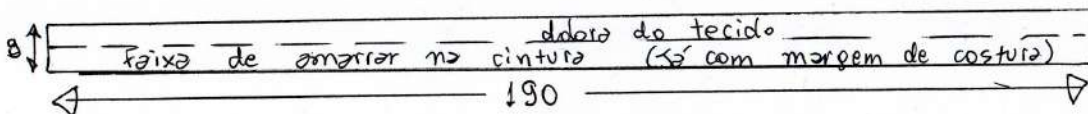 dobra do tecido
8
Faixa de amarrar na cintura (Já com margem de costura)
190